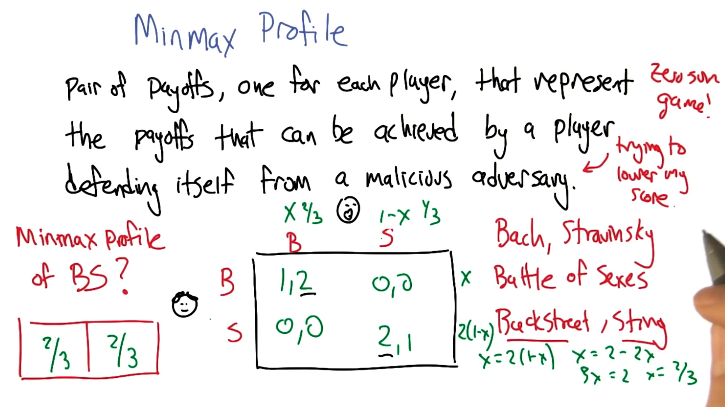 Minmax Profile
Pair of Payoffs, one for each player, that represent
the payoffs that can be achieved by a player
defending itself from a malicious adversary.
Zero sum
game!
trying to
lower my
score.
Minmax profile
of BS?
2/3 2/3
X 2/3 1-X 1/3
B S
B 1,2 0,0 x
S 0,0 2,1 2(1-x)
Bach, Stravinsky
Battle of Sexes
Backstreet, Sting
x=2(1-x) x=2-2x
3x=2 x=2/3